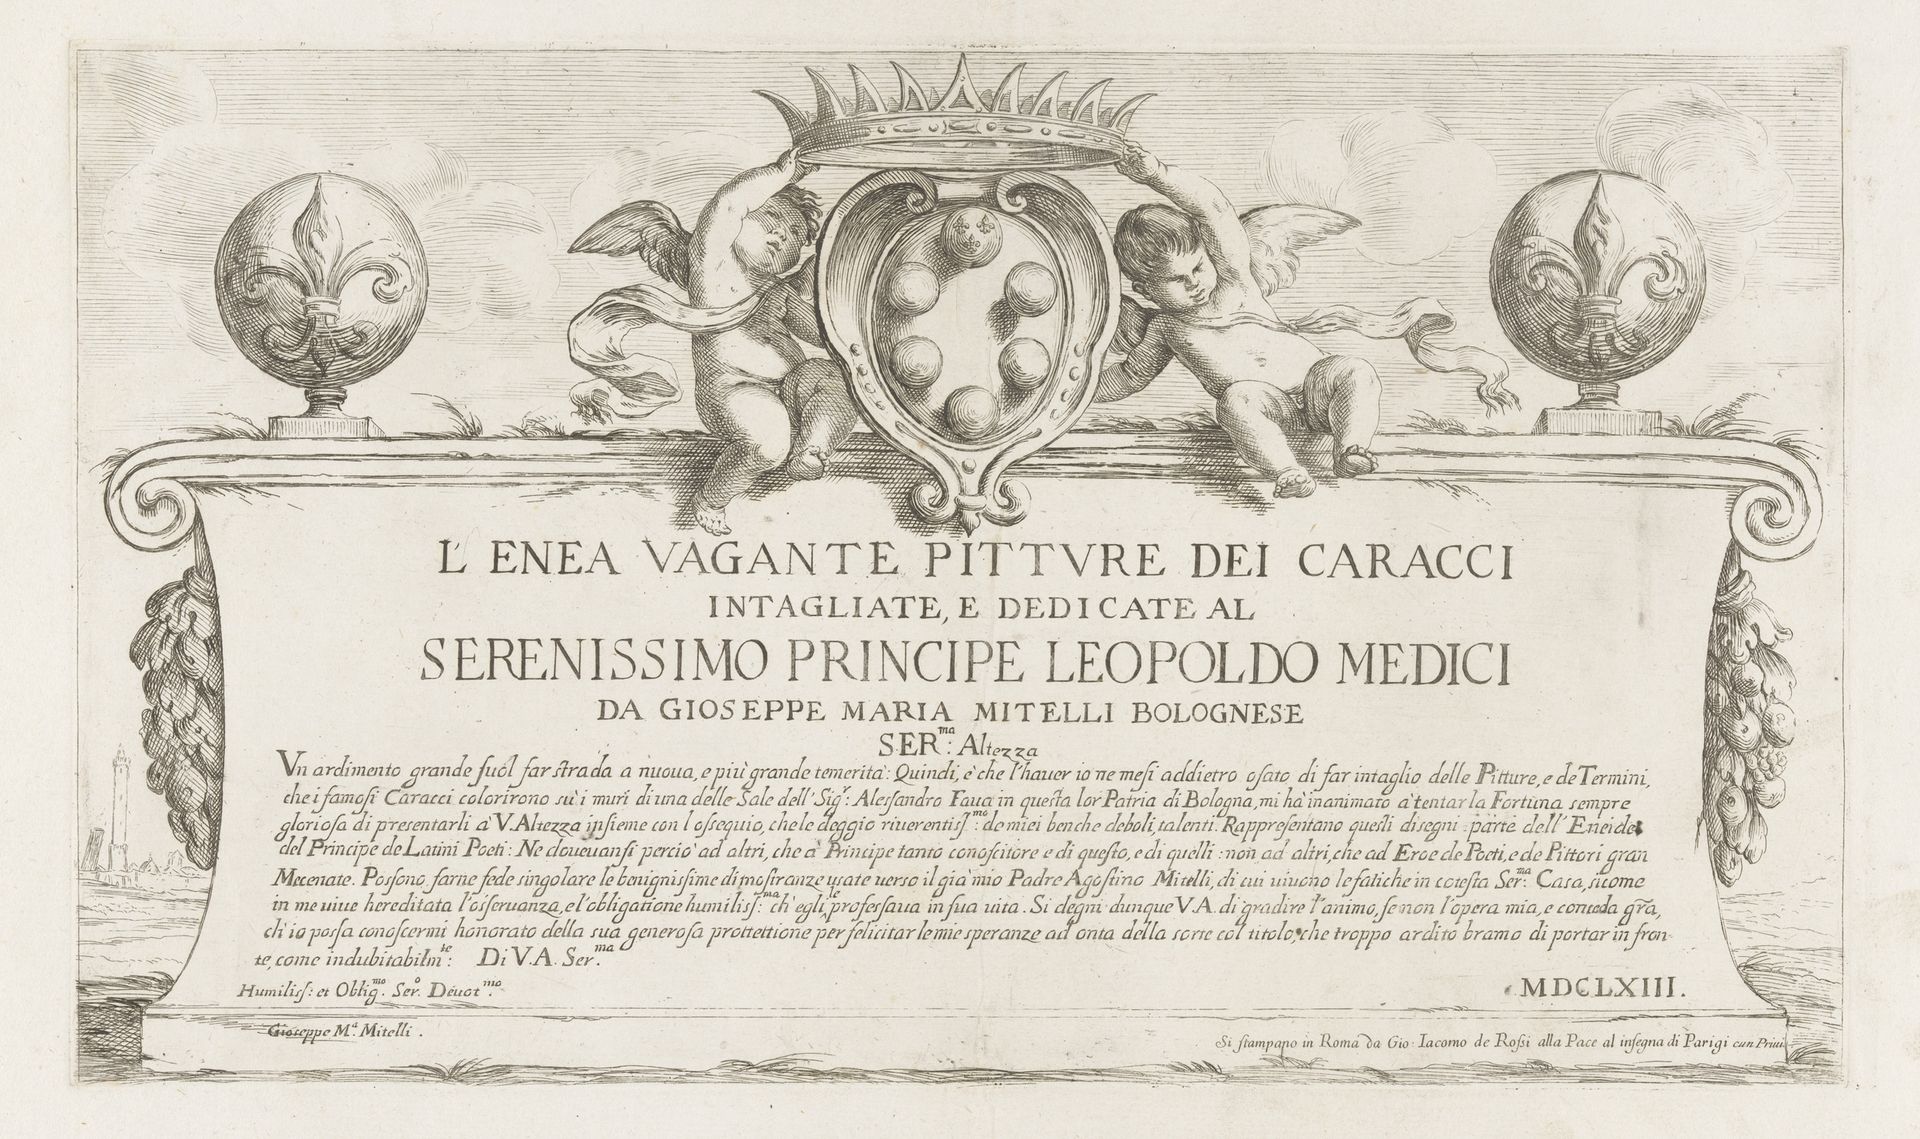 L' ENEA VAGANTE PITTVRE DEI CARACCI
INTAGLIATE, E DEDICATE AL
SERENISSIMO PRINCIPE LEOPOLDO MEDICI
DA GIOSEPPE MARIA MITELLI BOLOGNESE
SER.ma: Altezza
Vn ardimento grande suol far strada a nuoua, e più grande temerità: Quindi, è che l'hauer io ne mesi addietro osato di far intaglio delle Pitture, e de Termini,
che i famosi Caracci colorirono sù i muri di una delle Sale dell' Sigr: Alessandro Faua in questa lor Patria di Bologna, mi hà inanimato à tentar la Fortuna sempre
gloriosa di presentarli à V. Altezza insieme con l ossequio, che le deggio riuerentiss:mo de miei benche deboli, talenti. Rappresentano questi disegni parte dell' Eneide
del Principe de Latini Poeti: Ne doueuansi perciò ad altri, che à Principe tanto conoscitore e di questo, e di quelli: non ad altri, che ad Eroe de Poeti, e de Pittori gran
Mecenate. Possono farne fede singolare le benignissime dimostranze usate uerso il già mio Padre Agostino Mitelli, di cui uiuono le fatiche in cotesta Ser.ma Casa, sicome
in me uiue hereditata l'osseruanza, e l'obligatione humiliss:ma ch' egli le professaua in sua uita. Si degni dunque V.A. di gradire l'animo, se non l'opera mia, e conceda gra,
ch' io possa conoscermi honorato della sua generosa prottettione per felicitar le mie speranze ad onta della sorte col titolo, che troppo ardito bramo di portar in fron-
te, come indubitabilm.te: Di V.A. Ser.ma
Humiliss: et Oblig.mo Ser.o Deuot.mo
MDCLXIII.
Gioseppe M.a Mitelli.
Si stampano in Roma da Gio: Iacomo de Rossi alla Pace al insegna di Parigi cun Priui.